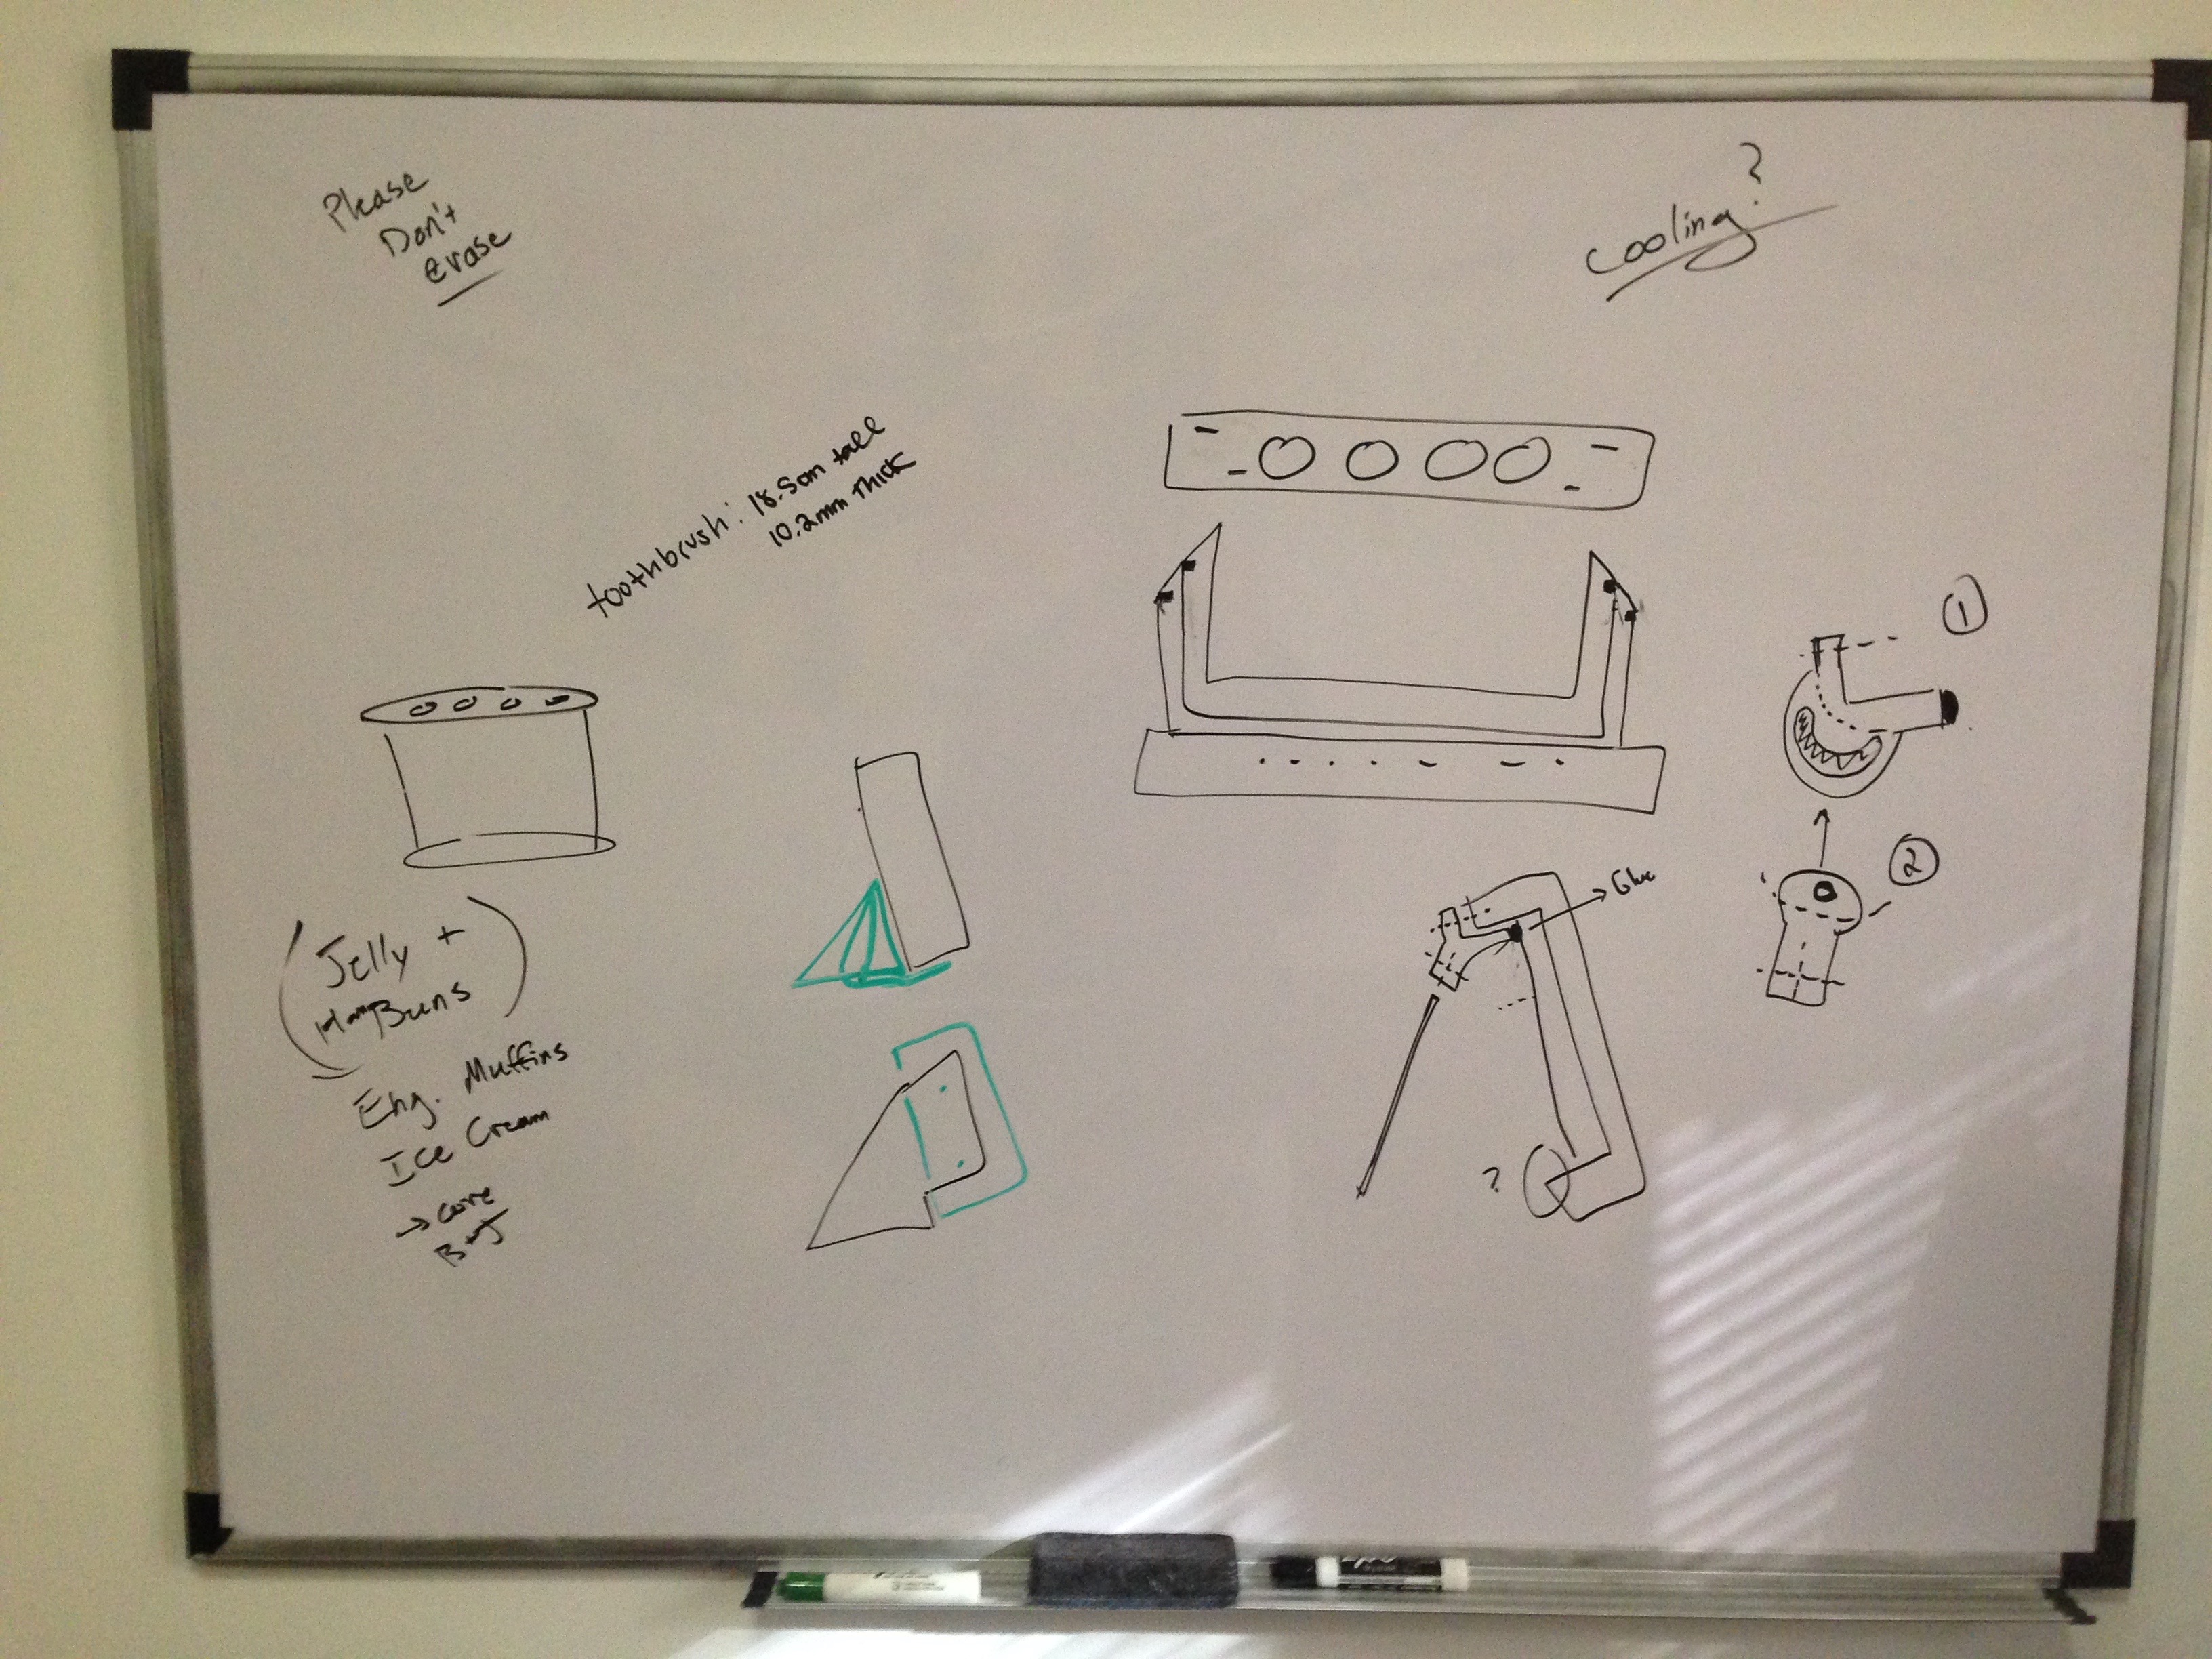 Please
Don't
erase
cooling?
toothbrush: 18.5cm tall
10.2mm Thick
1
2
Glue
?
(Jelly +
Ham Buns)
Eng. Muffins
Ice Cream
→